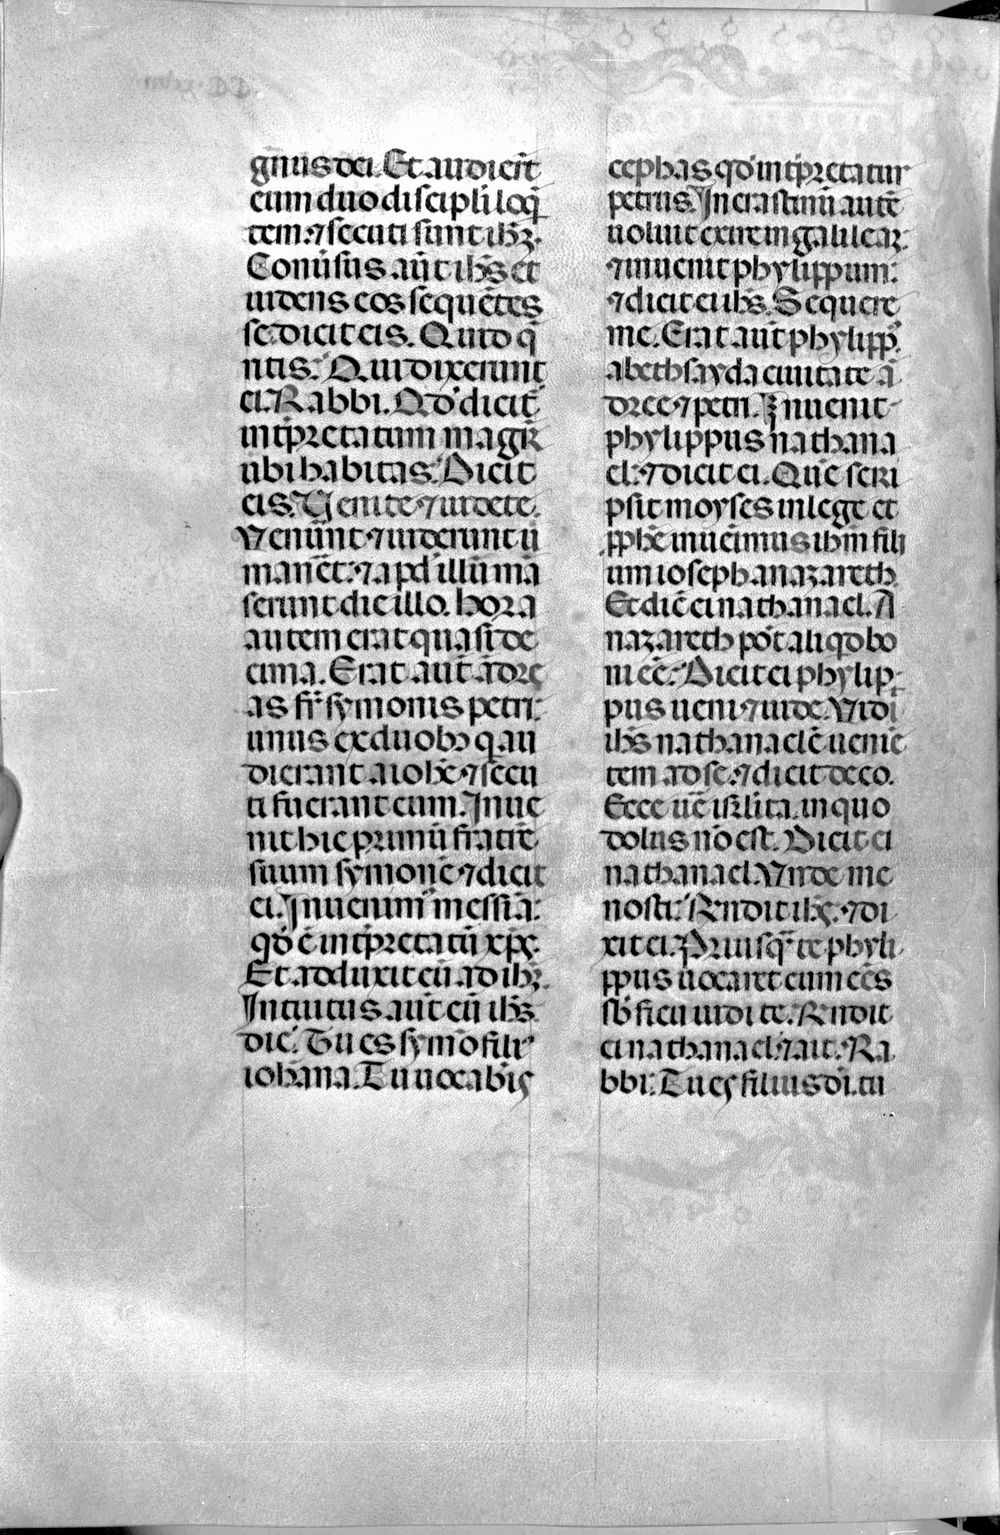 gnus dei. Et audiert̄
eum duo discipli loq̄
tem: ⁊ secuti sunt ihm̄.
Conūsus aūt ihs̄ et
uidens eos sequētes
se. dicit eis. Quid q̄
ritis. Qui dixerunt
ei. Rabbi. Qd̓ dicit̄
int̄pretatum magr̄
ubi habitas. Dicit
eis. Uenite ⁊ uidete.
Uener̄unt ⁊ uiderunt ū
manēt: ⁊ apd̓ illū mā
serunt die illo. hora
autem erat quasi de
cima. Erat aūt ādre
as fr̄ symonis petri:
unus ex duobꝫ q̇ au
dierant a iohē ⁊ secu
ti fuerant eum. Inue
nit hic primū fratrē
suum symonē ⁊ dicit
ei. Inuenimꝰ messiā:
qd̓ ē int̄pretatū xp̄s.
Et adduxit eū ad ihm̄.
Intuitus aūt eū ihs̄
dic̄. Tu es symō filiꝰ
iohāna. Tu uocabis
cephas qd̓ int̄pretatur
petrus. In crastinū autē
uoluit exire in galileaꝫ:
⁊ inuenit phylippum:
⁊ dicit ei ihs̄. Sequere
me. Erat aūt phylippꝰ
a bethsayda ciuitate ā
dree ⁊ petri. Inuenit
phylippus nathana
el: ⁊ dicit ei. Quē scri
psit moyses in lege et
ꝓphē inuenimus ihm̄ fili
um ioseph a nazareth.
Et dic̄ ei nathanael. A
nazareth pōt aliqd̓ bo
ni eē. Dicit ei phylip
pus ueni ⁊ uide. Uidi
ihs̄ nathanaelē uenie
tem ad se: ⁊ dicit de eo.
Ecce ue isr̄lita. in quo
dolus nō est. Dicit ei
nathanael. Unde me
nosti. Rn̄dit ihs̄: ⁊ di
xit ei. Priusq̄ te phyli
ppus uocaret cum eēs
sb̓ ficu uidi te. Rn̄dit
ei nathanael: ⁊ ait. Ra
bbi: Tu es filius di̇. tu